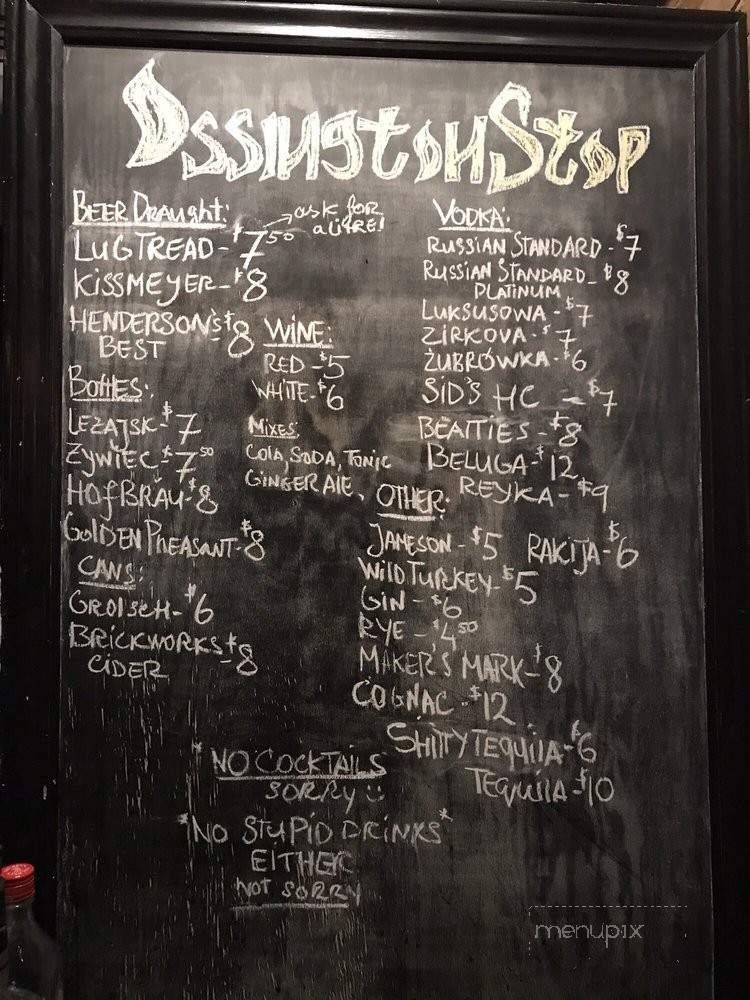 OssingtonStop
BEER Draught:
LUGTREAD - $7 50
→ ask for
a LITRE!
KISSMEYER - $8
HENDERSON's - $8
BEST
Bottles:
LEZAJSK - $7
ŻYWIEC - $7 50
HOFBRÄU - $8
GOLDEN PHEASANT - $8
CANS:
GROLSCH - $6
BRICKWORKS - $8
CIDER
WINE:
RED - $5
WHITE - $6
MIXES:
COLA, SODA, TONIC
GINGER ALE,
VODKA:
RUSSIAN STANDARD - $7
RUSSIAN STANDARD - $8
PLATINUM
LUKSUSOWA - $7
ZIRKOVA - $7
ŻUBRÓWKA - $6
SID'S HC - $7
BEATTIES - $8
BELUGA - $12
REYKA - $9
OTHER:
JAMESON - $5 RAKIJA - $6
WILD TURKEY - $5
GIN - $6
RYE - $4 50
MAKER'S MARK - $8
COGNAC - $12
SHITTY TEQUILA - $6
TEQUILA - $10
* NO COCKTAILS
SORRY ☺
*NO STUPID DRINKS*
EITHER
NOT SORRY
menupix